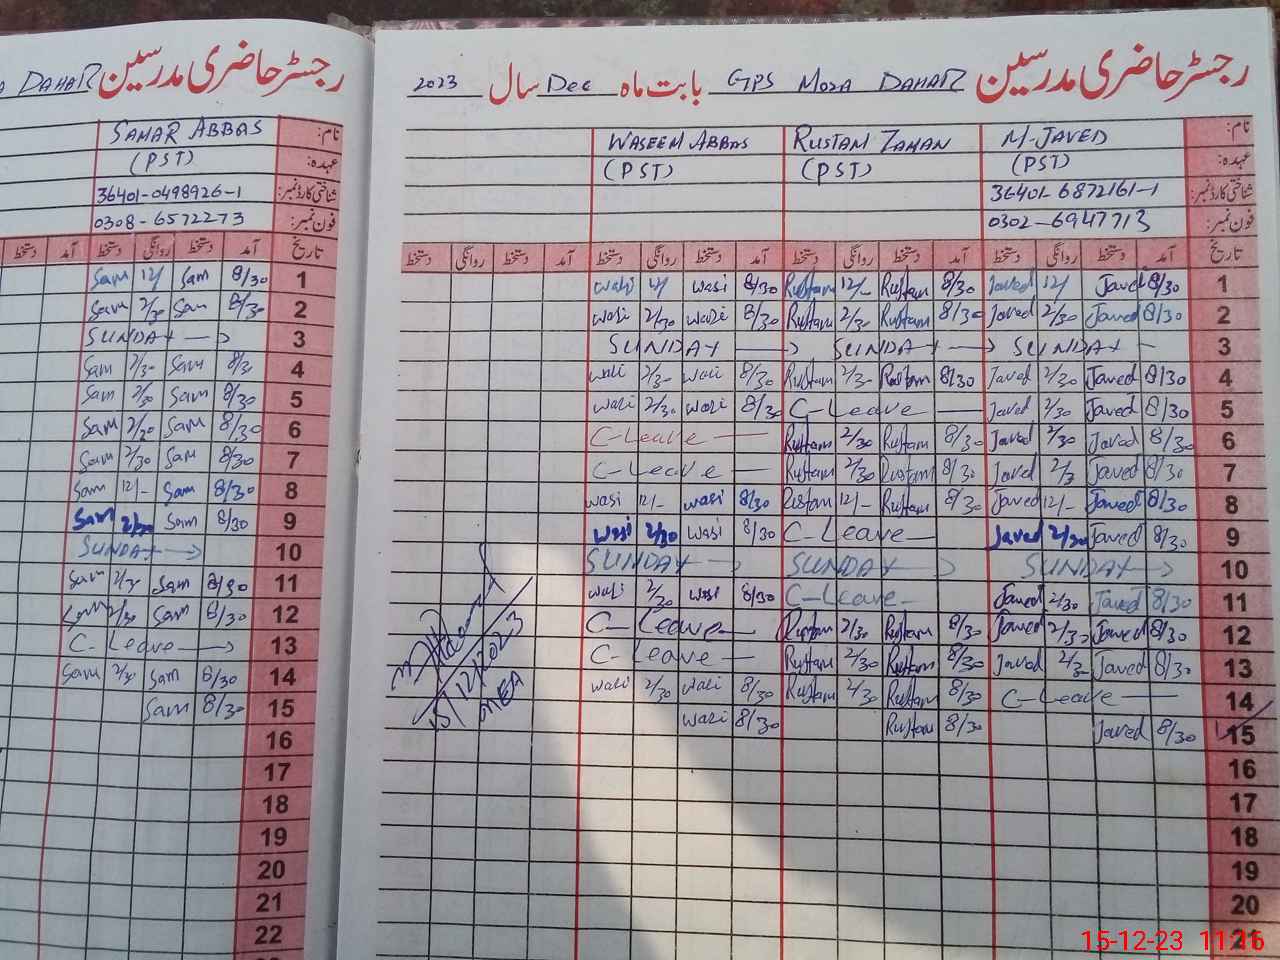 DAHAR رجسٹر حاضری مدرسین
نام: SAMAR ABBAS
عہدہ: (PST)
شناختی کارڈ نمبر: 36401-0498926-1
فون نمبر: 0308-6572273
تاریخ آمد دستخط روانگی دستخط آمد دستخط
1 8/30 Sam 12/ Sam
2 8/30 Sam 2/30 Sam
3 SUNDAY
4 8/30 Sam 2/30 Sam
5 8/30 Sam 2/30 Sam
6 8/30 Sam 2/30 Sam
7 8/30 Sam 2/30 Sam
8 8/30 Sam 12/- Sam
9 8/30 Sam 2/30 Sam
10 SUNDAY
11 8/30 Sam 2/30 Sam
12 8/30 Sam 2/30 Sam
13 C-Leave
14 8/30 Sam 2/30 Sam
15 8/30 Sam
16
17
18
19
20
21
22
رجسٹر حاضری مدرسین GPS MOZA DAHAR بابت ماہ Dec سال 2023
نام: M-JAVED RUSTAM ZAMAN WASEEM ABBAS
عہدہ: (PST) (PST) (PST)
شناختی کارڈ نمبر: 36401-6872161-1
فون نمبر: 0302-6947713
تاریخ آمد دستخط روانگی دستخط آمد دستخط روانگی دستخط آمد دستخط روانگی دستخط آمد دستخط روانگی دستخط
1 8/30 Javed 12/ Javed 8/30 Rustam 12/- Rustam 8/30 wasi 12/ wasi
2 8/30 Javed 2/30 Javed 8/30 Rustam 2/30 Rustam 8/30 wasi 2/30 wasi
3 SUNDAY SUNDAY SUNDAY
4 8/30 Javed 2/30 Javed 8/30 Rustam 2/30 Rustam 8/30 wasi 2/30 wasi
5 8/30 Javed 2/30 Javed C-Leave 8/30 wasi 2/30 wasi
6 8/30 Javed 2/30 Javed 8/30 Rustam 2/30 Rustam C-Leave
7 8/30 Javed 2/3 Javed 8/30 Rustam 2/30 Rustam C-Leave
8 8/30 Javed 12/- Javed 8/30 Rustam 12/- Rustam 8/30 wasi 12/- wasi
9 8/30 Javed 2/30 Javed C-Leave 8/30 wasi 2/30 wasi
10 SUNDAY SUNDAY SUNDAY
11 8/30 Javed 2/30 Javed C-Leave 8/30 wasi 2/30 wasi
12 8/30 Javed 2/30 Javed 8/30 Rustam 2/30 Rustam C-Leave
13 8/30 Javed 2/30 Javed 8/30 Rustam 2/30 Rustam C-Leave
14 C-Leave 8/30 Rustam 2/30 Rustam 8/30 wasi 2/30 wasi
15 8/30 Javed 8/30 Rustam 8/30 wasi
16
17
18
19
20
21
15/12/2023
MEA
15-12-23 11:16